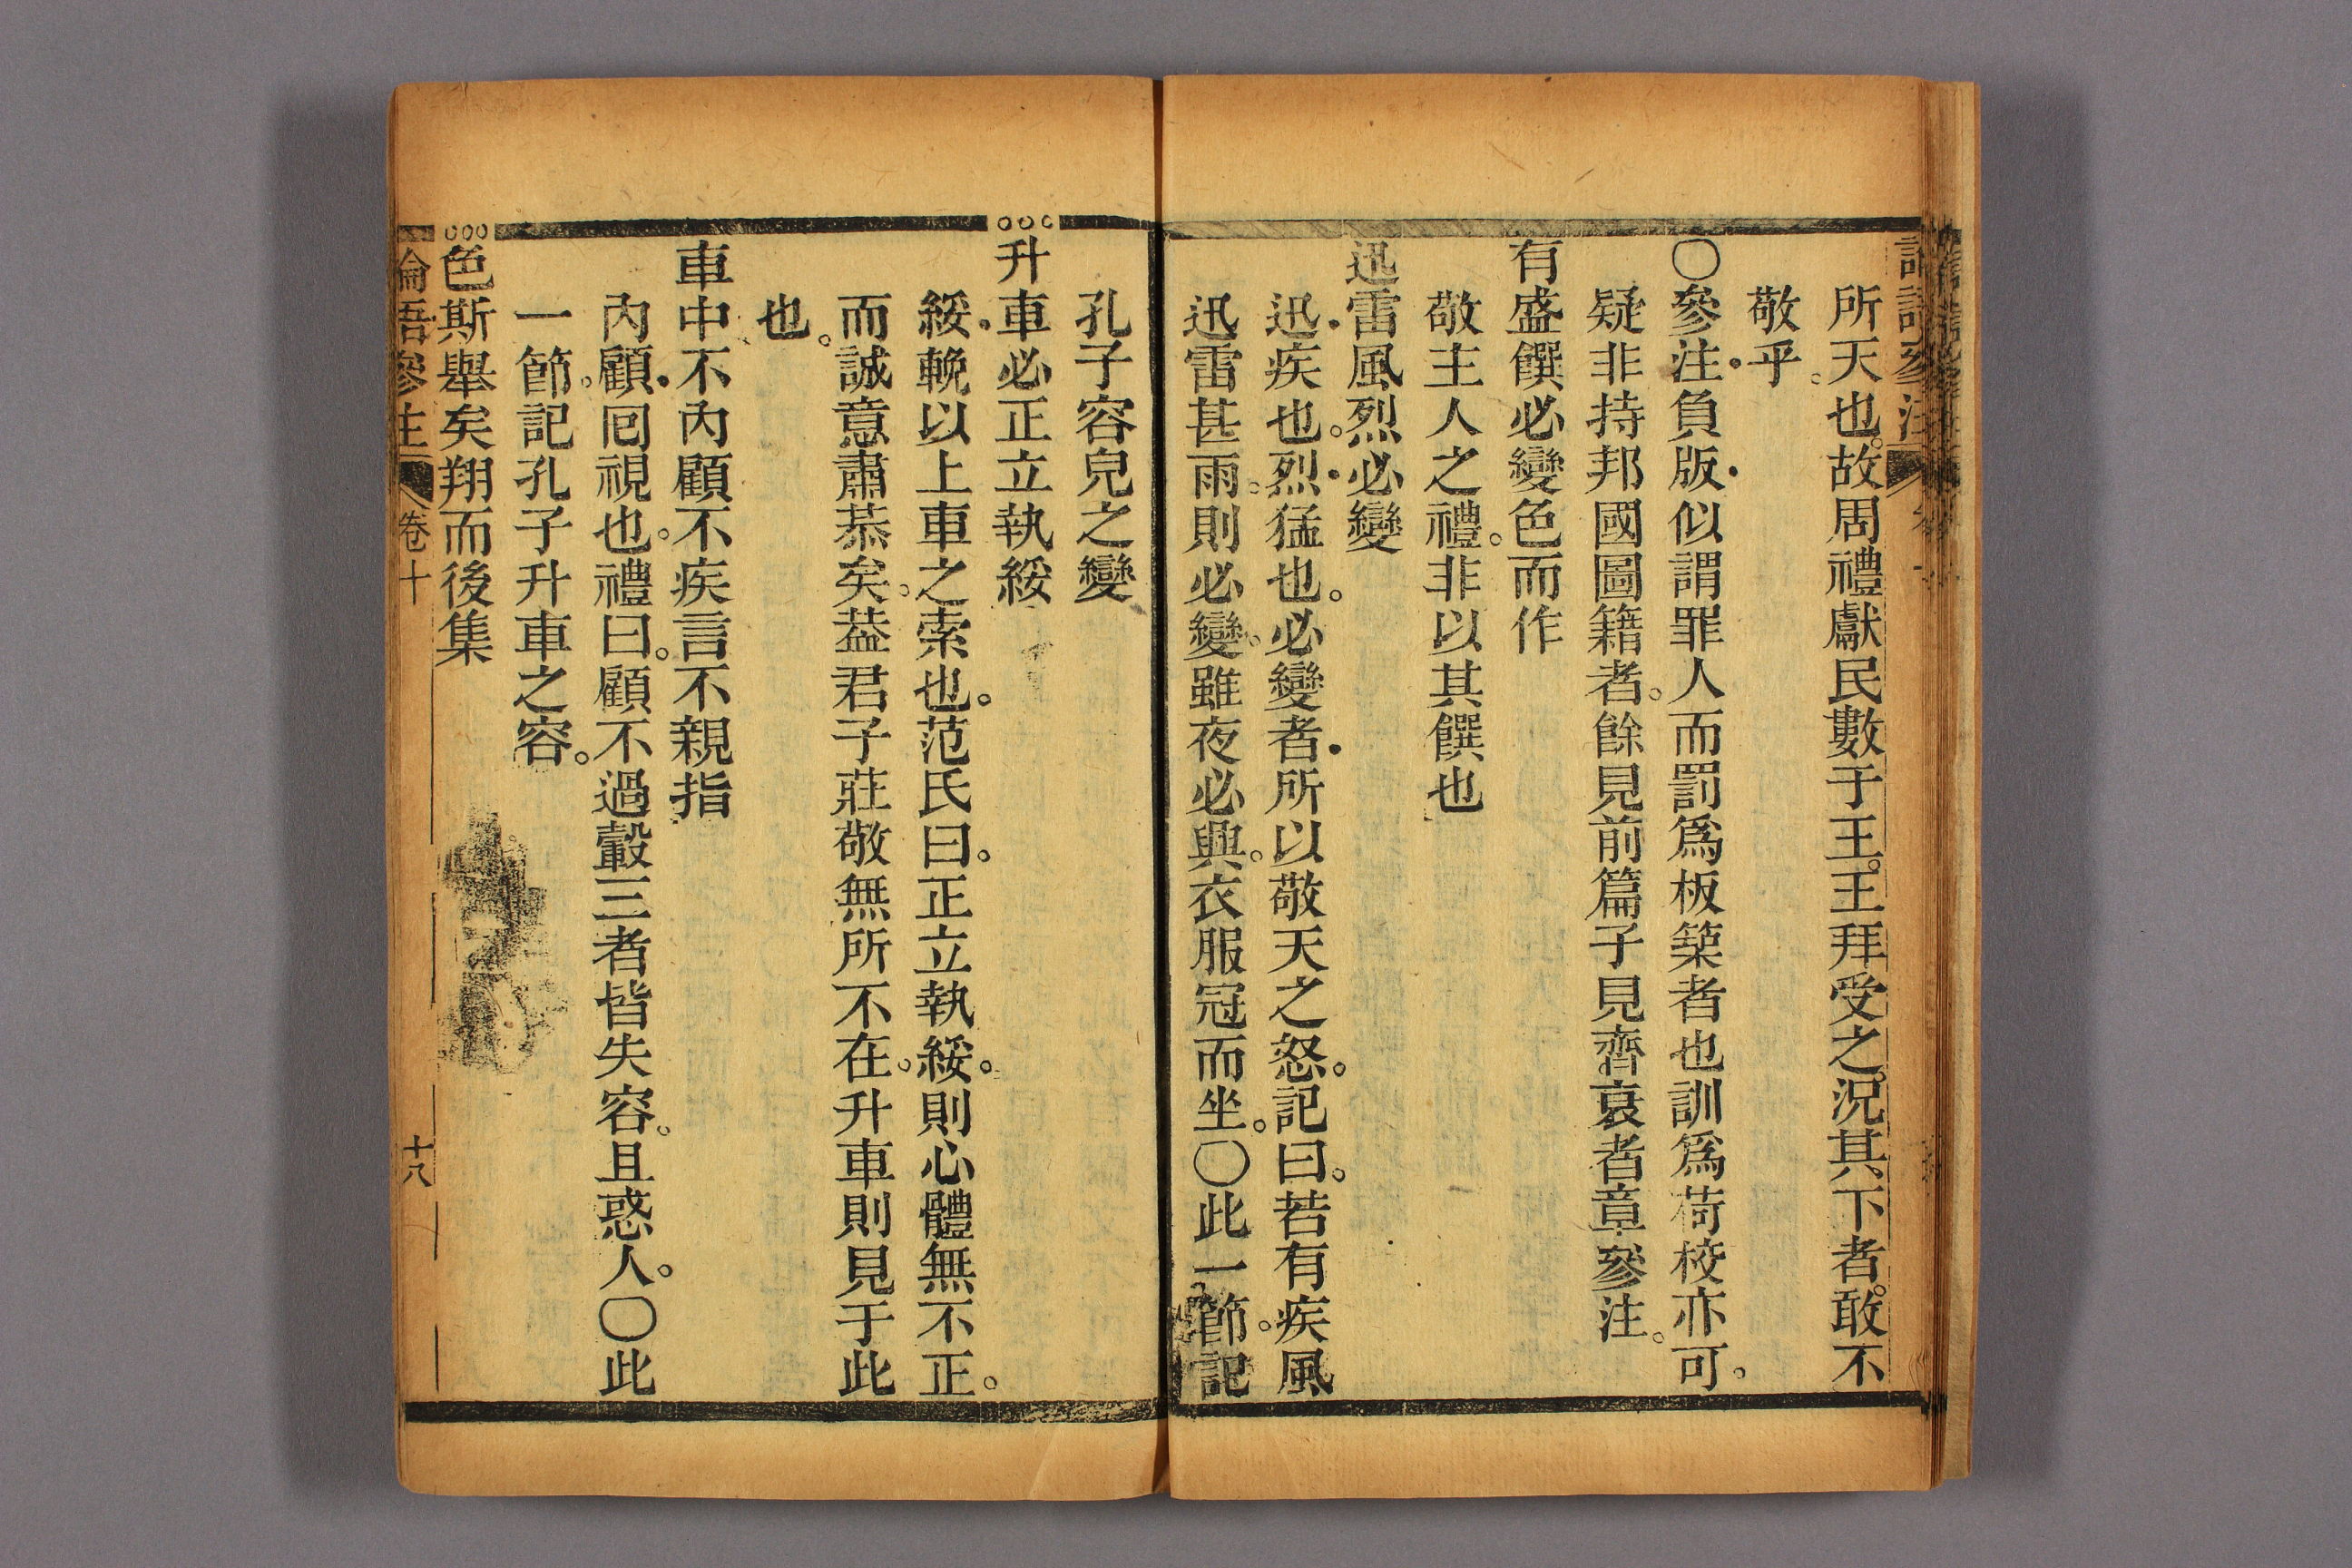 所天也。故周禮獻民數于王。王拜受之。況其下者。敢不
敬乎。
〇參注負版似謂罪人而罰爲板築者也訓爲荷校亦可。
疑非持邦國圖籍者。餘見前篇子見齊衰者章參注。
有盛饌必變色而作
敬主人之禮。非以其饌也
迅雷風烈必變
迅疾也。烈猛也。必變者所以敬天之怒。記曰。若有疾風
迅雷甚雨。則必變。雖夜必興。衣服冠而坐。〇此一節。記
孔子容皃之變
升車必正立執綏
綏輓以上車之索也。范氏曰。正立執綏。則心體無不正。
而誠意肅恭矣。葢君子莊敬無所不在。升車則見于此
也。
車中不內顧不疾言不親指
內顧囘視也。禮曰。顧不過轂三者皆失容。且惑人。〇此
一節。記孔子升車之容。
色斯舉矣翔而後集
論語參注 卷十 十八